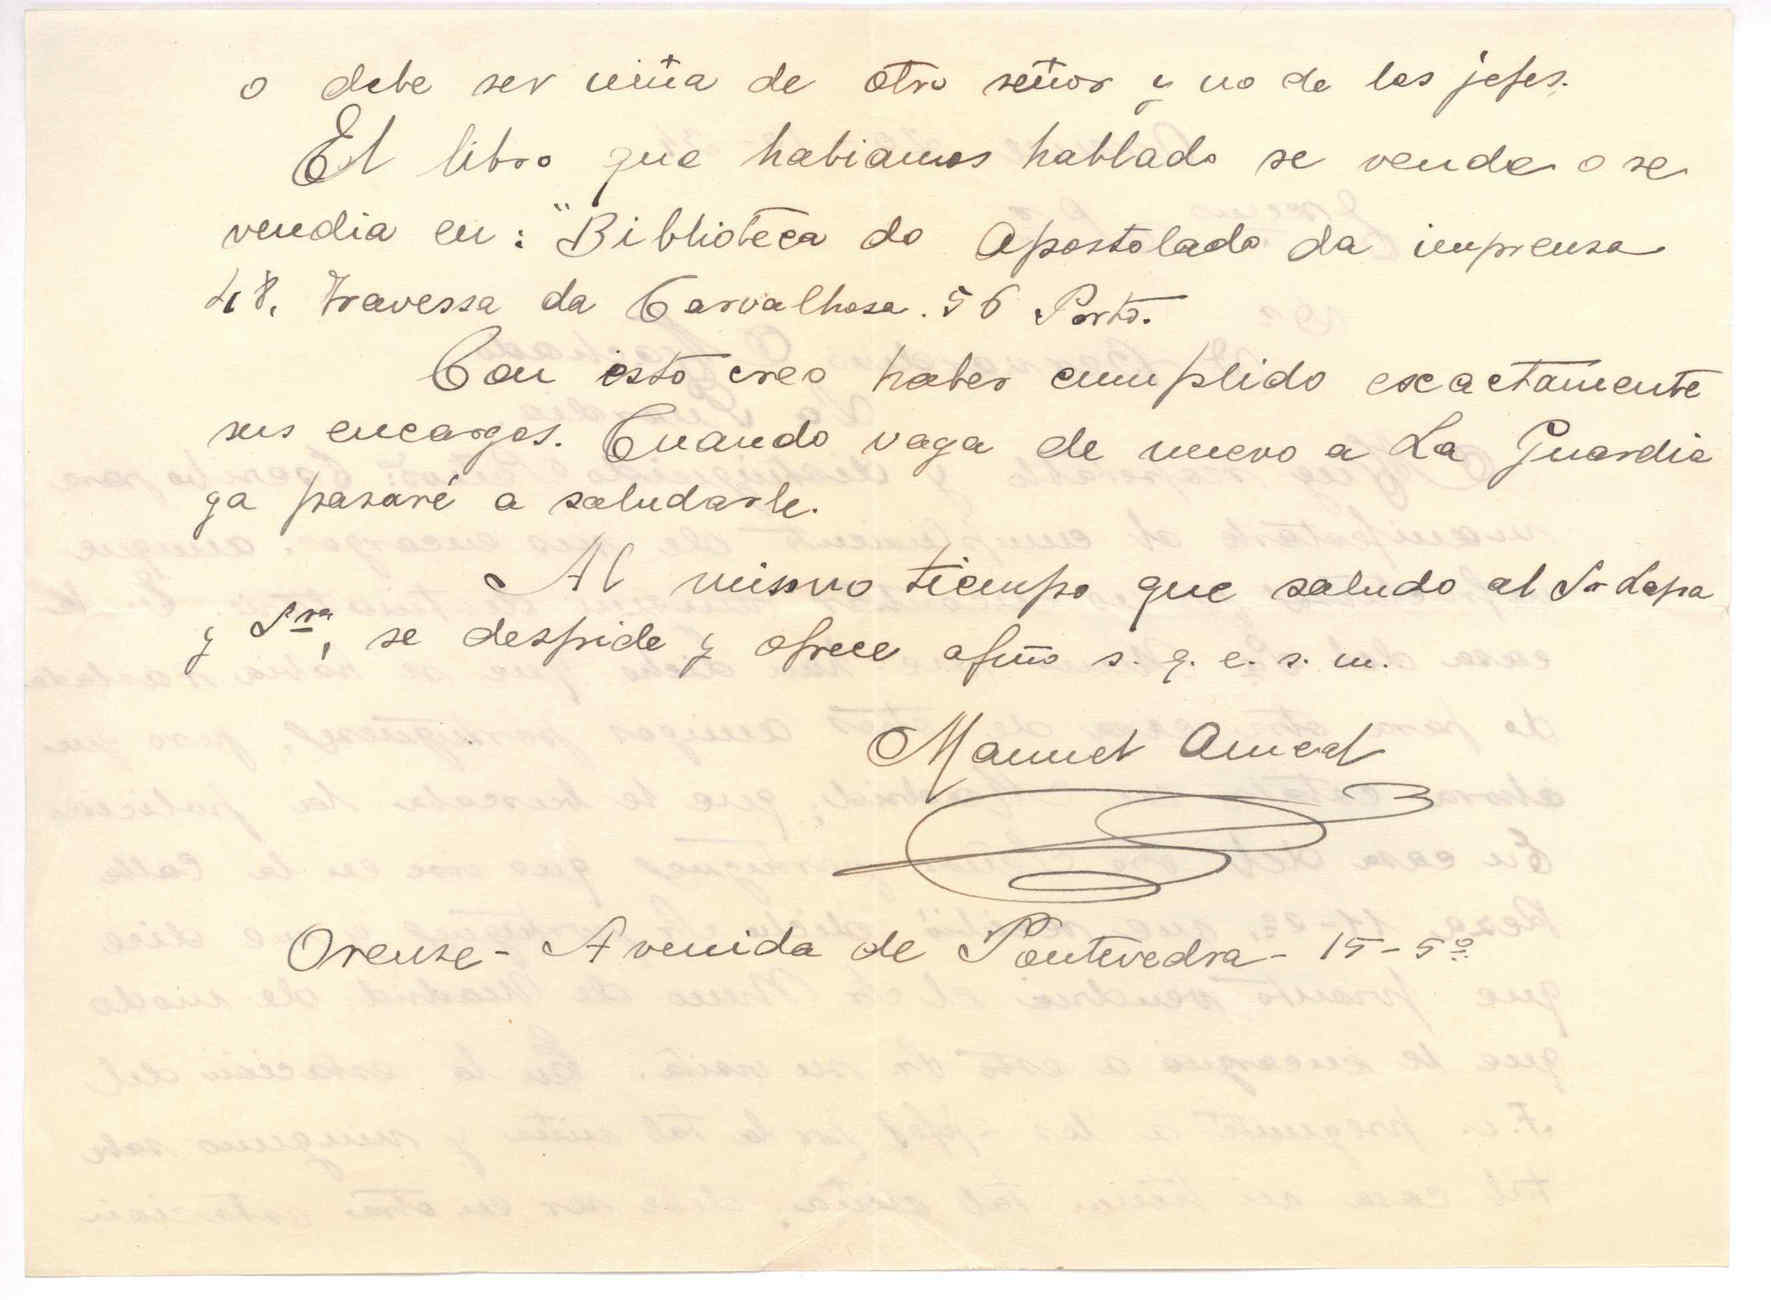 o debe ser niña de otro señor y no de los jefes.
El libro que habiamos hablado se vende o se
vendia en: "Biblioteca do Apostolado da imprensa
48, Travessa da Carvalhosa. 56 Porto.
Con esto creo haber cumplido exactamente
sus encargos. Cuando vaga de nuevo a La Guardia
ya pasaré a saludarle.
Al mismo tiempo que saludo al Sr Lapa
y Sra, se despide y ofrece afmo s. q. e. s. m.
Manuel
Orense - Avenida de Pontevedra - 15 - 5º